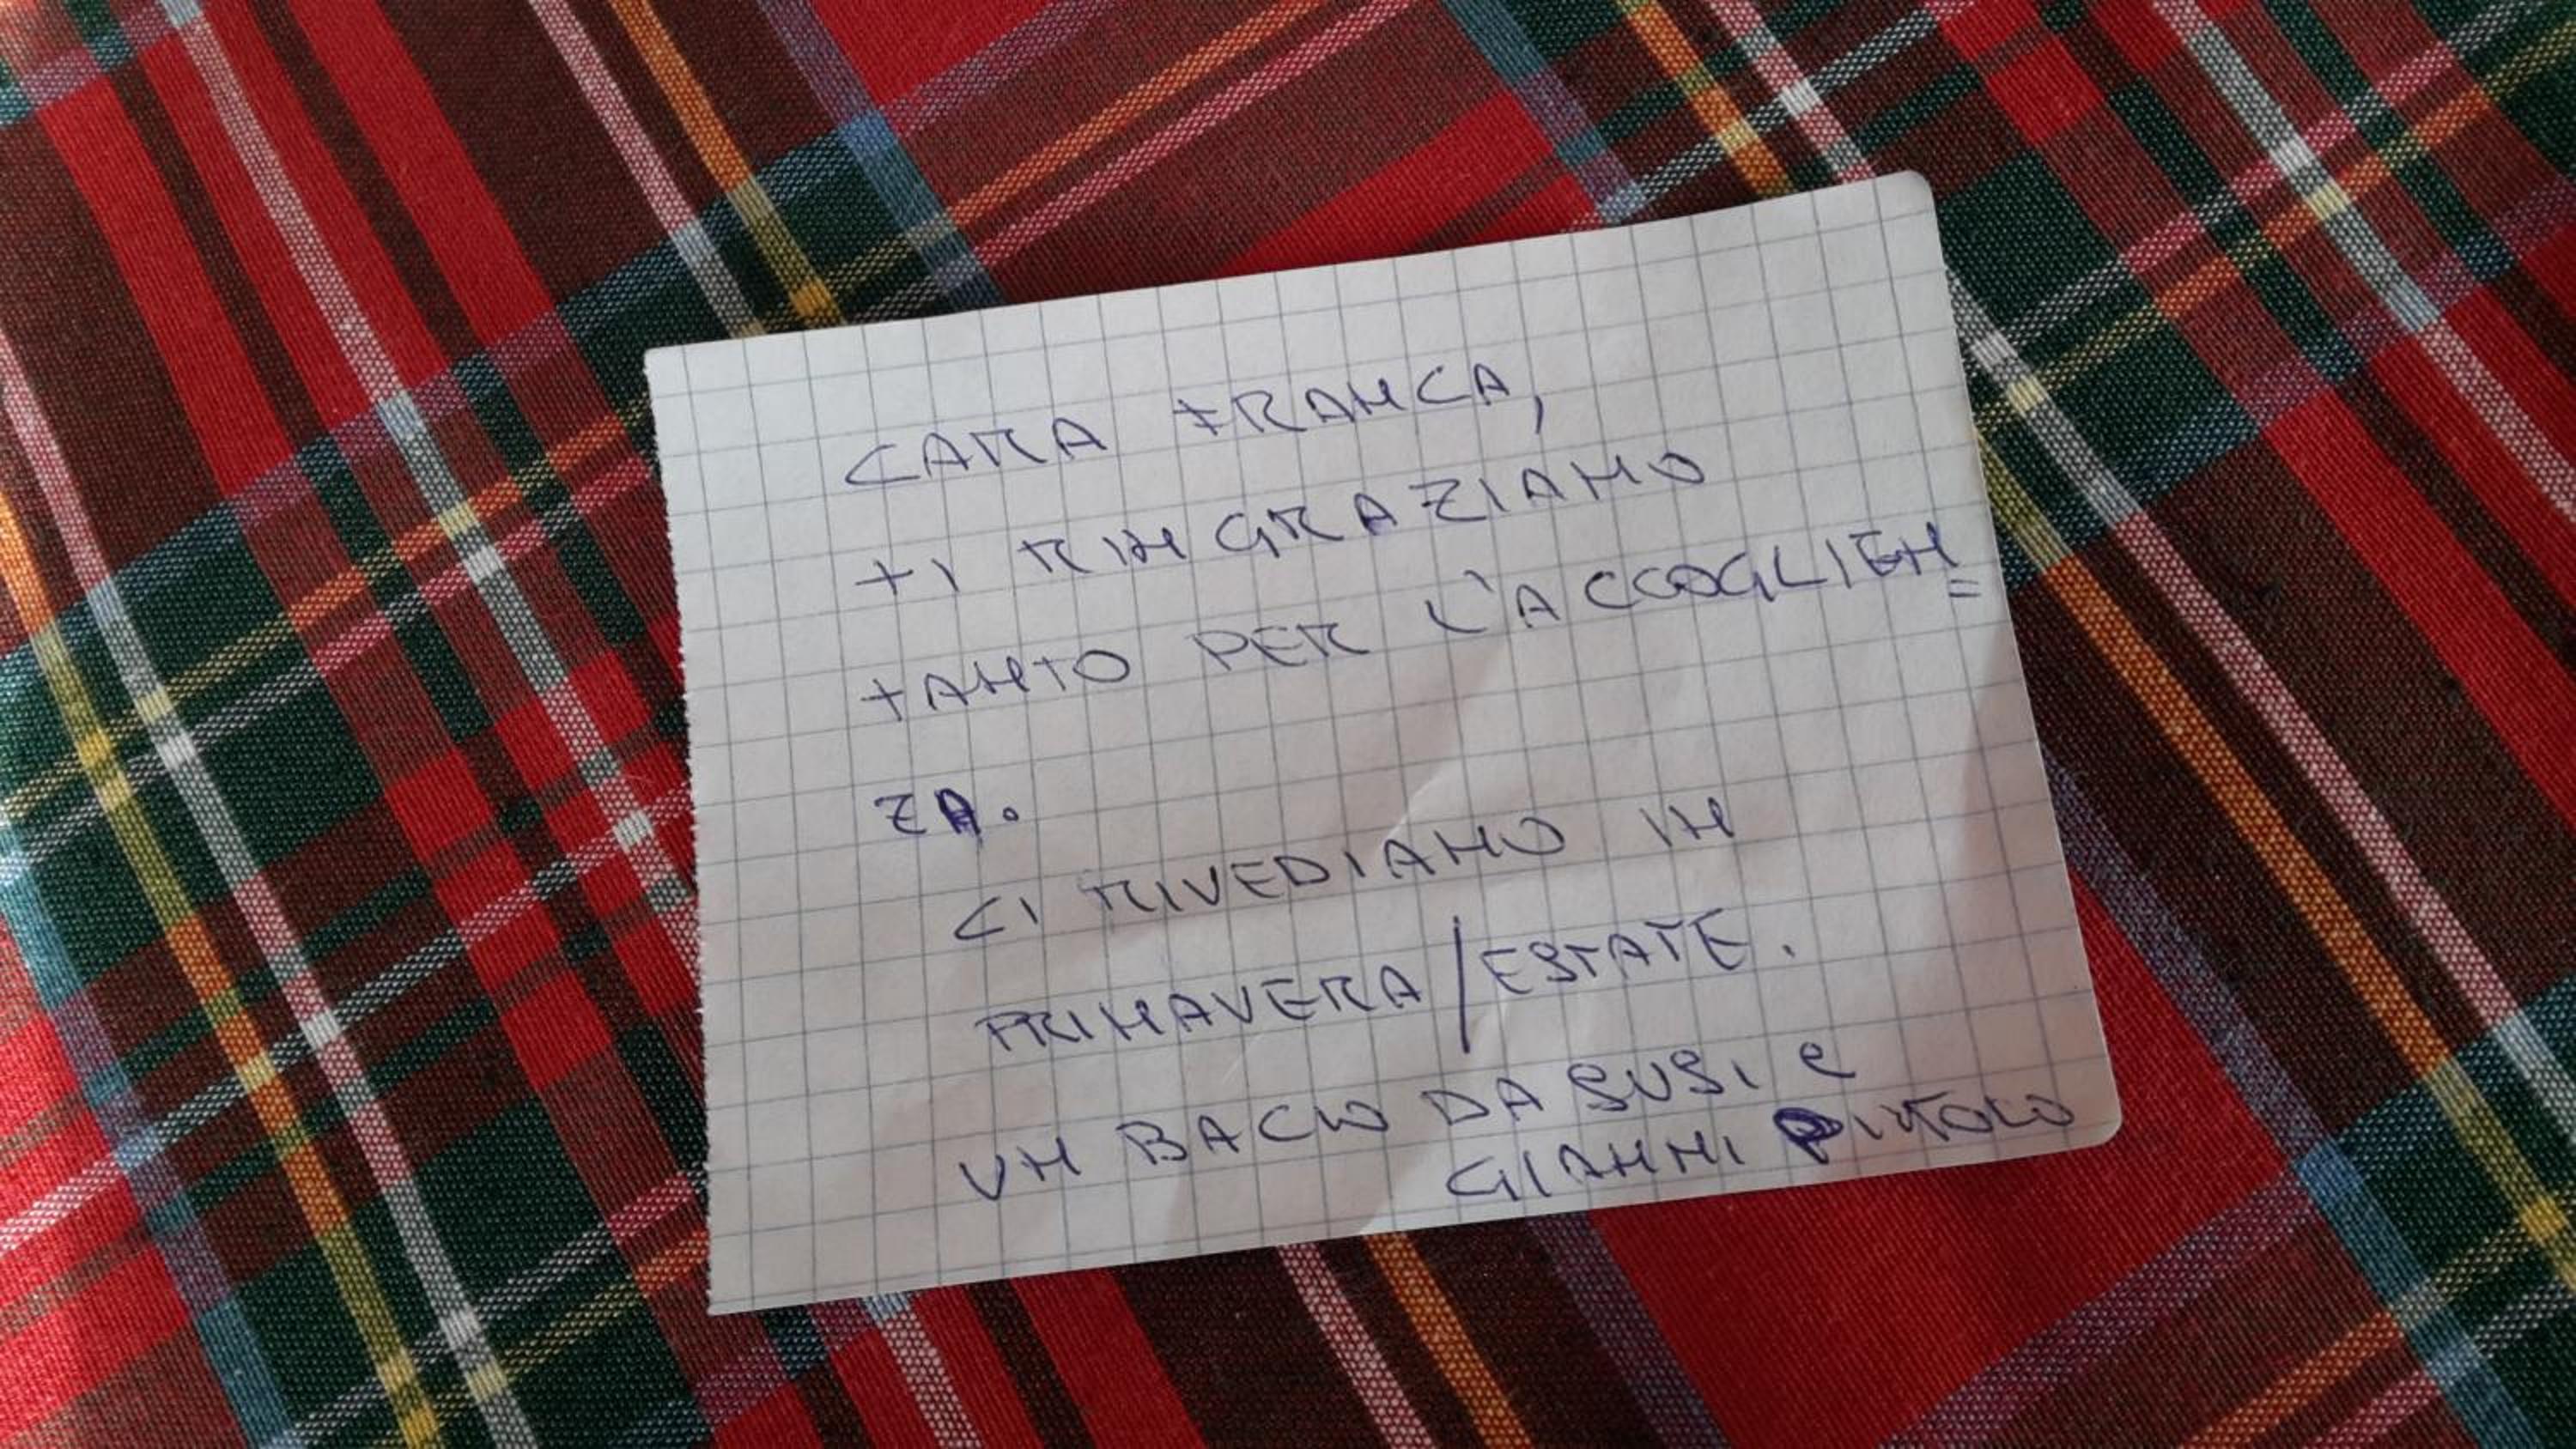 CARA FRANCA,
TI RINGRAZIAMO
TANTO PER L'ACCOGLIEN=
ZA.
CI RIVEDIAMO IN
PRIMAVERA/ESTATE.
UN BACIO DA SUSI e
GIANNI